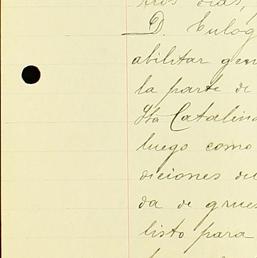 tros días,
D. Eulog
abilitar gen
la parte de
Sta Catalina
luego como
diciones de
da de grues
listo para